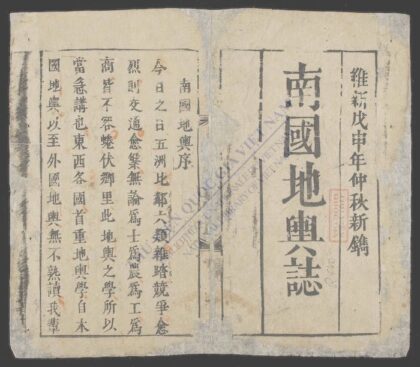 維新戊申年仲秋新鐫
南國地輿誌
南國地輿序
今日之日五洲比鄰六類雜踏競爭愈
烈則交通愈繁無論爲士爲農爲工爲
商皆不容蜷伏鄉里此地輿之學所以
當急講也東西各國首重地輿學自本
國地輿以至外國地輿無不熟讀我輩
THƯ VIỆN QUỐC GIA VIỆT NAM